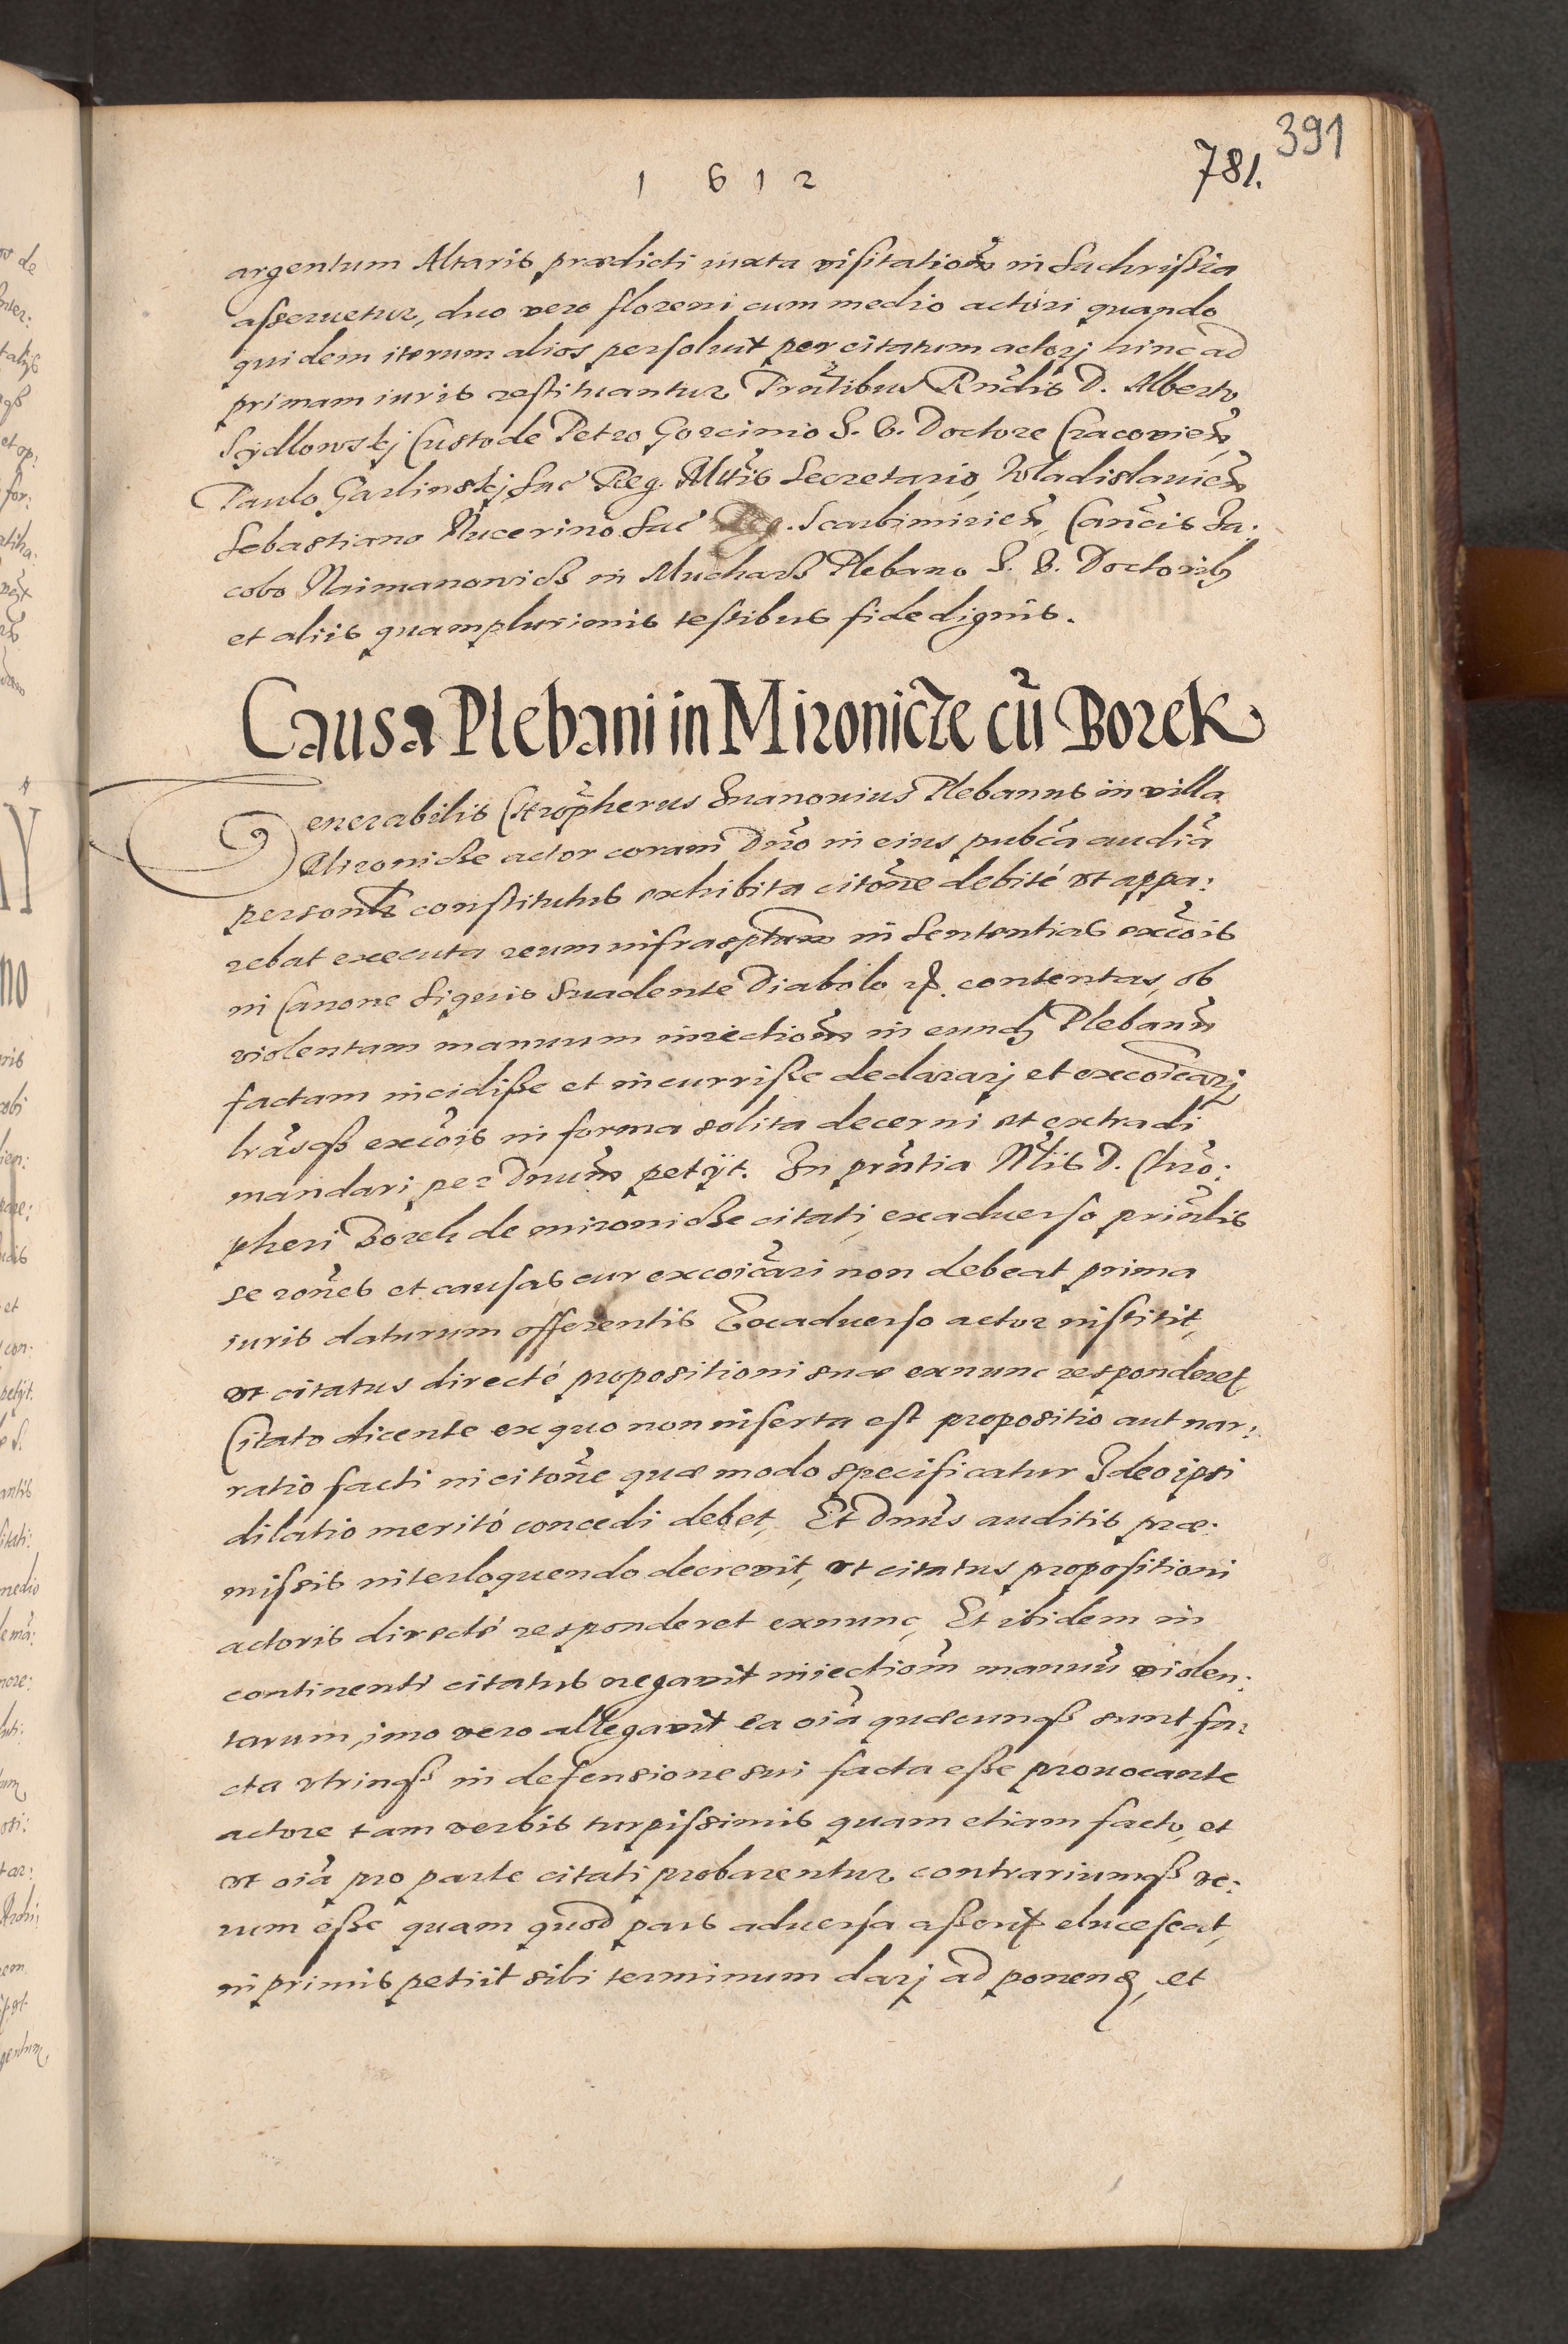 391
781.
1 6 1 2
argentum Altaris prædicti iuxta visitatiõm in Sachristia
asseruetur, duo vero floreni cum medio actori quando
quidem iterum alios persoluit per citatum actorj hinc ad
primam iuris restituantur Pñtibus Rñdis D. Alberto
Szydlowskj Custode Petro Gorcinio S. V. Doctore Cracouieñ,
Paulo Garlinskj Sac Reg. Mtis Secretario, Wladislauieñ
Sebastiano Nucerino Sac Scarbimirieñ, Cañcis Ja:
cobo Naimanowicz in Mucharz Plebano S. V. Doctorib9
et aliis quamplurimis testibus fide dignis.
Causa Plebani in Mironicze cũ Borek
Venerabilis Chrõpherus Iuanouius Plebanus in villa
Mironicze actor coram Dño in eius pubca audiã
personlr constitutus exhibita citõne debité vt appa:
rebat executa reum infrasptum in Sententias excõis
in Canone Siquis Suadente Diabolo &. contentas, ob
violentam manuum iniectiõm in eundẽ Plebanũ
factam incidisse et incurrisse declararj et excõicarj
lrãsq3 excõis in forma solita decerni et extradi
mandari per Dnum petijt. In prñtia Mtis D. Chrõ:
pheri Borek de mironicze citati, exaduerso priñlis
se roñes et causas cur excoicãri non debeat prima
iuris daturum offerentis Exaduerso actor institit,
vt citatus directé propositioni suæ exnunc responderet,
Citato dicente ex quo non inserta est propositio aut nar:
ratio facti in citõne quæ modo specificatur Ideo ipsi
dilatio meritó concedi debet, Et Dnus auditis præ:
missis interloquendo decreuit, vt citatus propositioni
actoris directé responderet exnunc, Et ibidem in
continenti citatus negauit iniectiõm manuũ violen:
tarum, imo vero allegauit ea oiã quæcunq3 sunt fa:
cta vtrinq3 in defensione sui facta esse prouocante
actore tam verbis turpissimis quam etiam facto, et
vt oiã pro parte citati probarentur contrariumq3 ve:
rum esse quam quod pars aduersa asserit elucescat,
inprimis petiit sibi terminum darj ad ponend, et